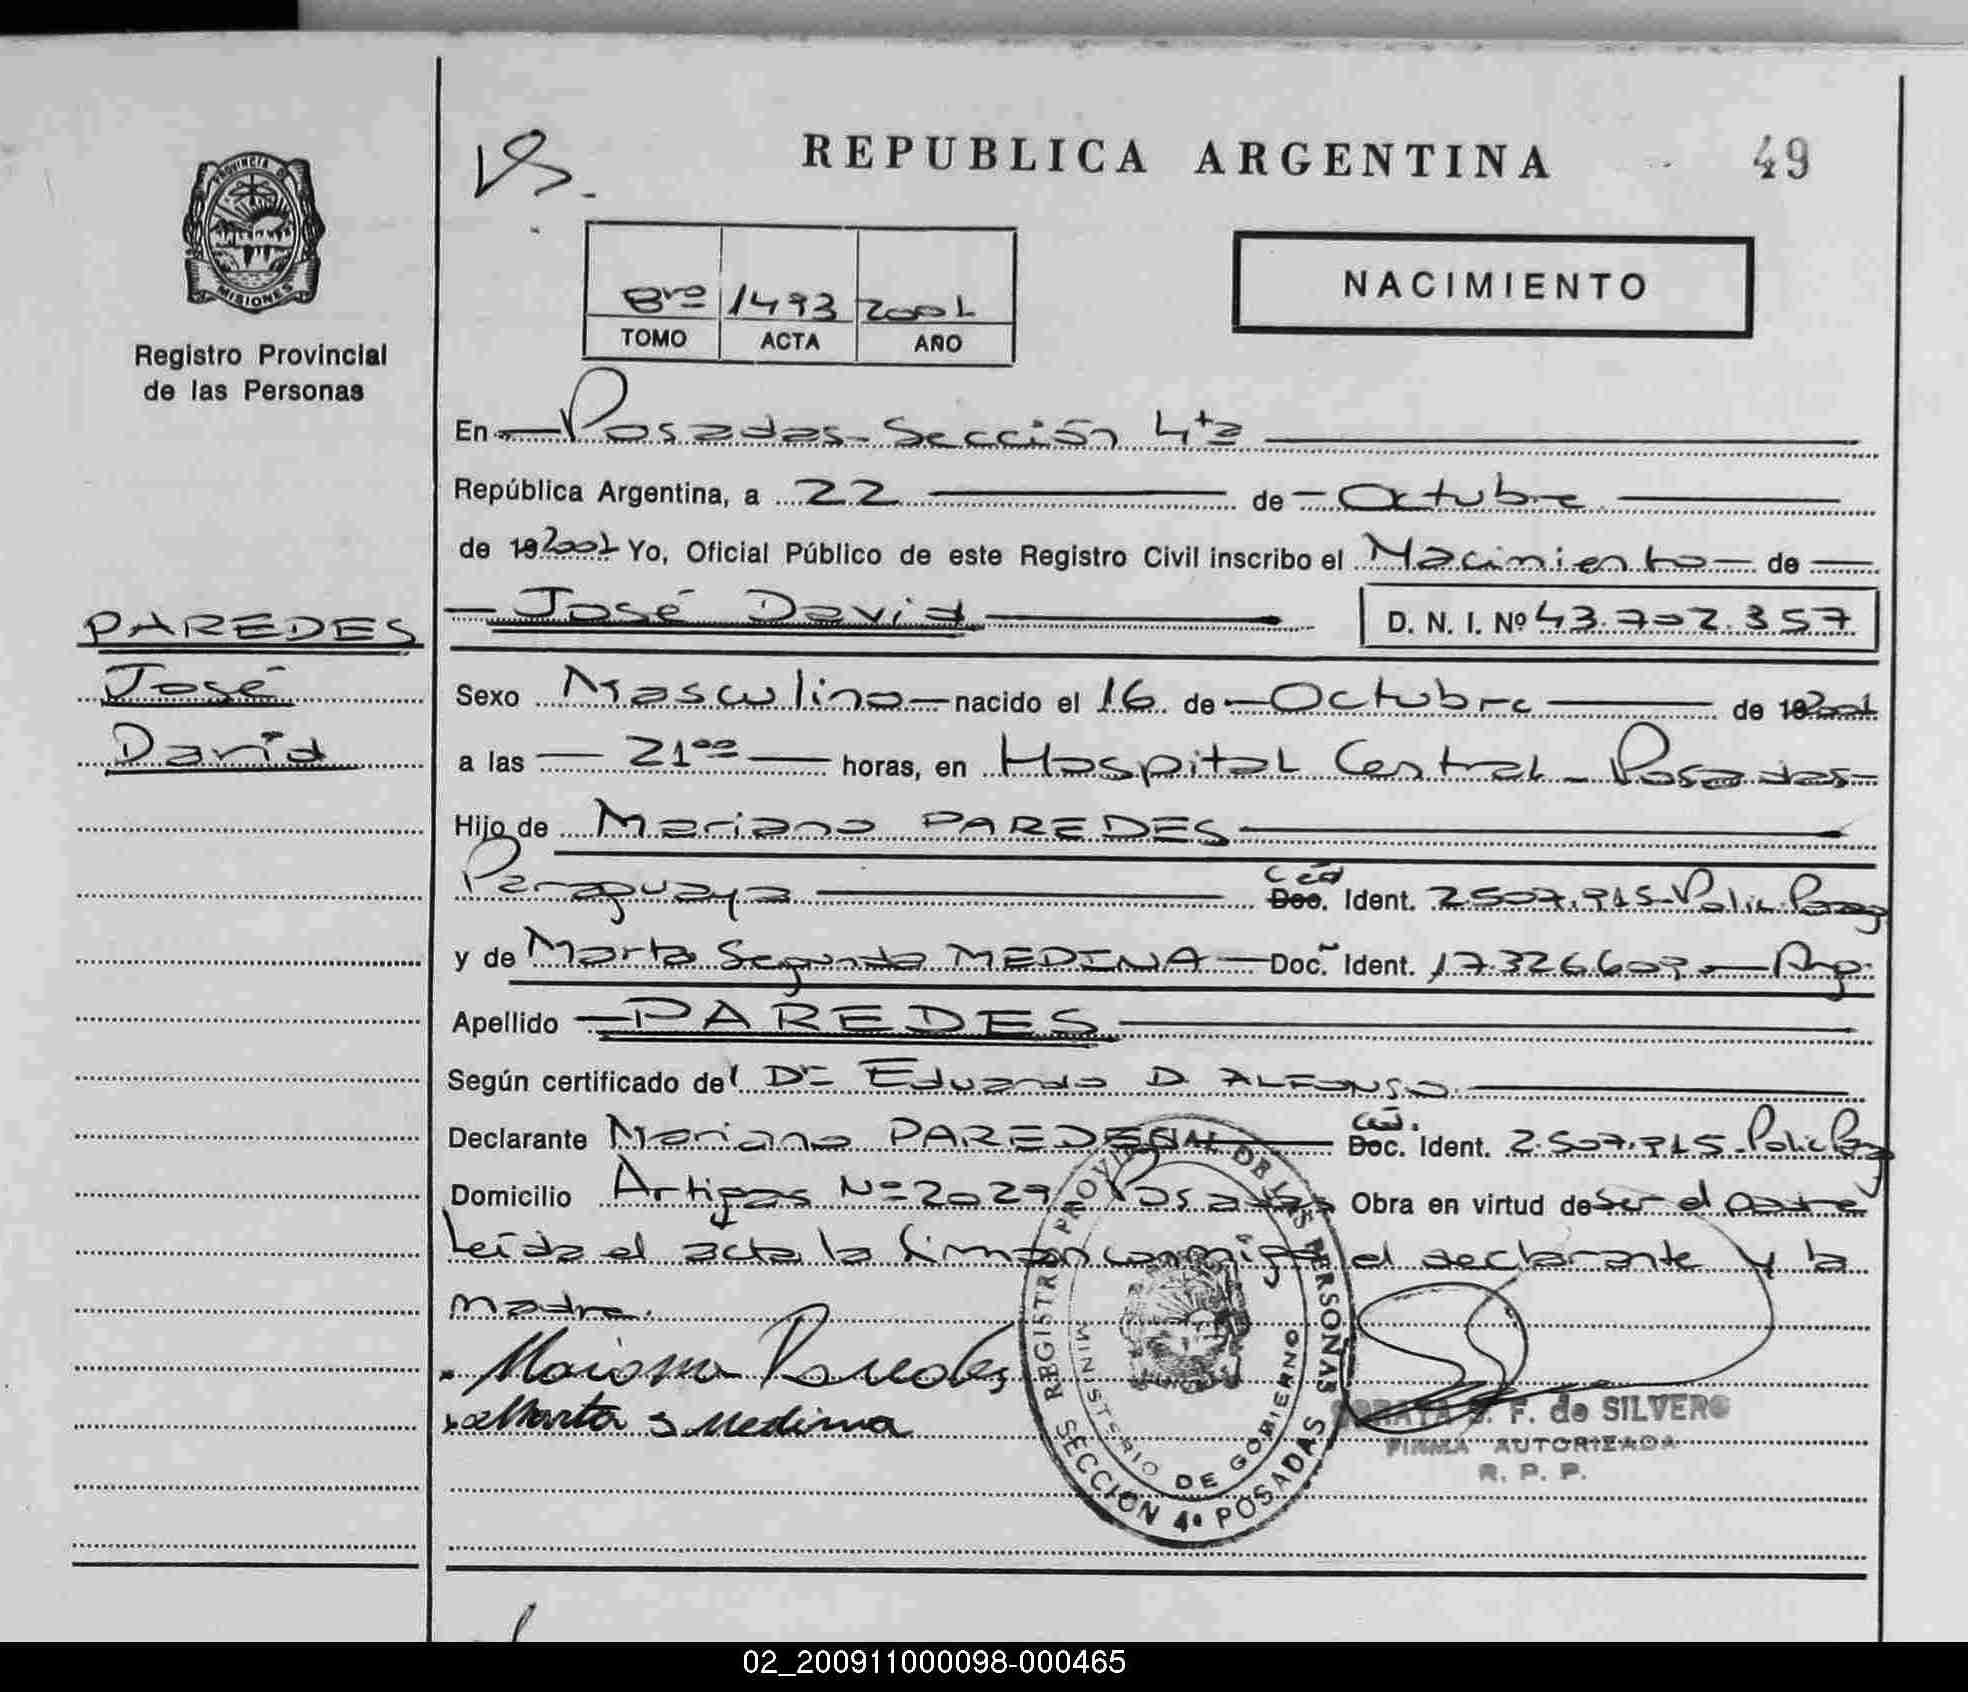 REPUBLICA ARGENTINA 49
PROVINCIA DE
MISIONES
Registro Provincial
de las Personas
8vo 1493 2001
TOMO ACTA AÑO
NACIMIENTO
En Posadas - Sección 4ta
República Argentina, a 22 de Octubre
de 19 2001 Yo, Oficial Público de este Registro Civil inscribo el Nacimiento de
José David D. N. I. Nº 43.702.357
PAREDES
José
David
Sexo Masculino nacido el 16 de Octubre de 19 2001
a las 21 00 horas, en Hospital Central - Posadas
Hijo de Mariano PAREDES
Paraguaya Céd Doc. Ident. 2.507.915 - Polic. Parag
y de Marta Segunda MEDINA Doc. Ident. 17.326.609 Arg.
Apellido PAREDES
Según certificado del Dr Eduardo D. ALFONSO
Declarante Mariano PAREDES Céd. Doc. Ident. 2.507.915 - Polic Parag
Domicilio Artigas Nº 2029 Posadas Obra en virtud de ser el padre
Leída el acta la firman conmigo el declarante y la
madre.
Mariano Paredes
Marta S Medina
REGISTRO PROVINCIAL DE LAS PERSONAS
MINISTERIO DE GOBIERNO
SECCION 4ª POSADAS
SORAYA S. F. de SILVERO
FIRMA AUTORIZADA
R. P. P.
02_200911000098-000465